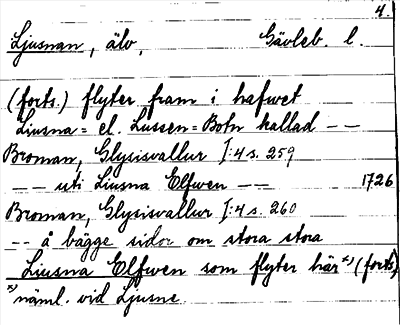 4.
Ljusnan, älv, Gävleb. l.
(forts.) flyter fram i hafwet
Liusna= el. Lussen=Botn kallad --
Broman, Glysisvallur I:4 s. 259
-- uti Liusna Elfwen -- 1726
Broman, Glysisvallur I:4 s. 260
-- å bägge sidor om stora stora
Liusna Elfwen som flyter här x) (forts.)
x) näml. vid Ljusne.